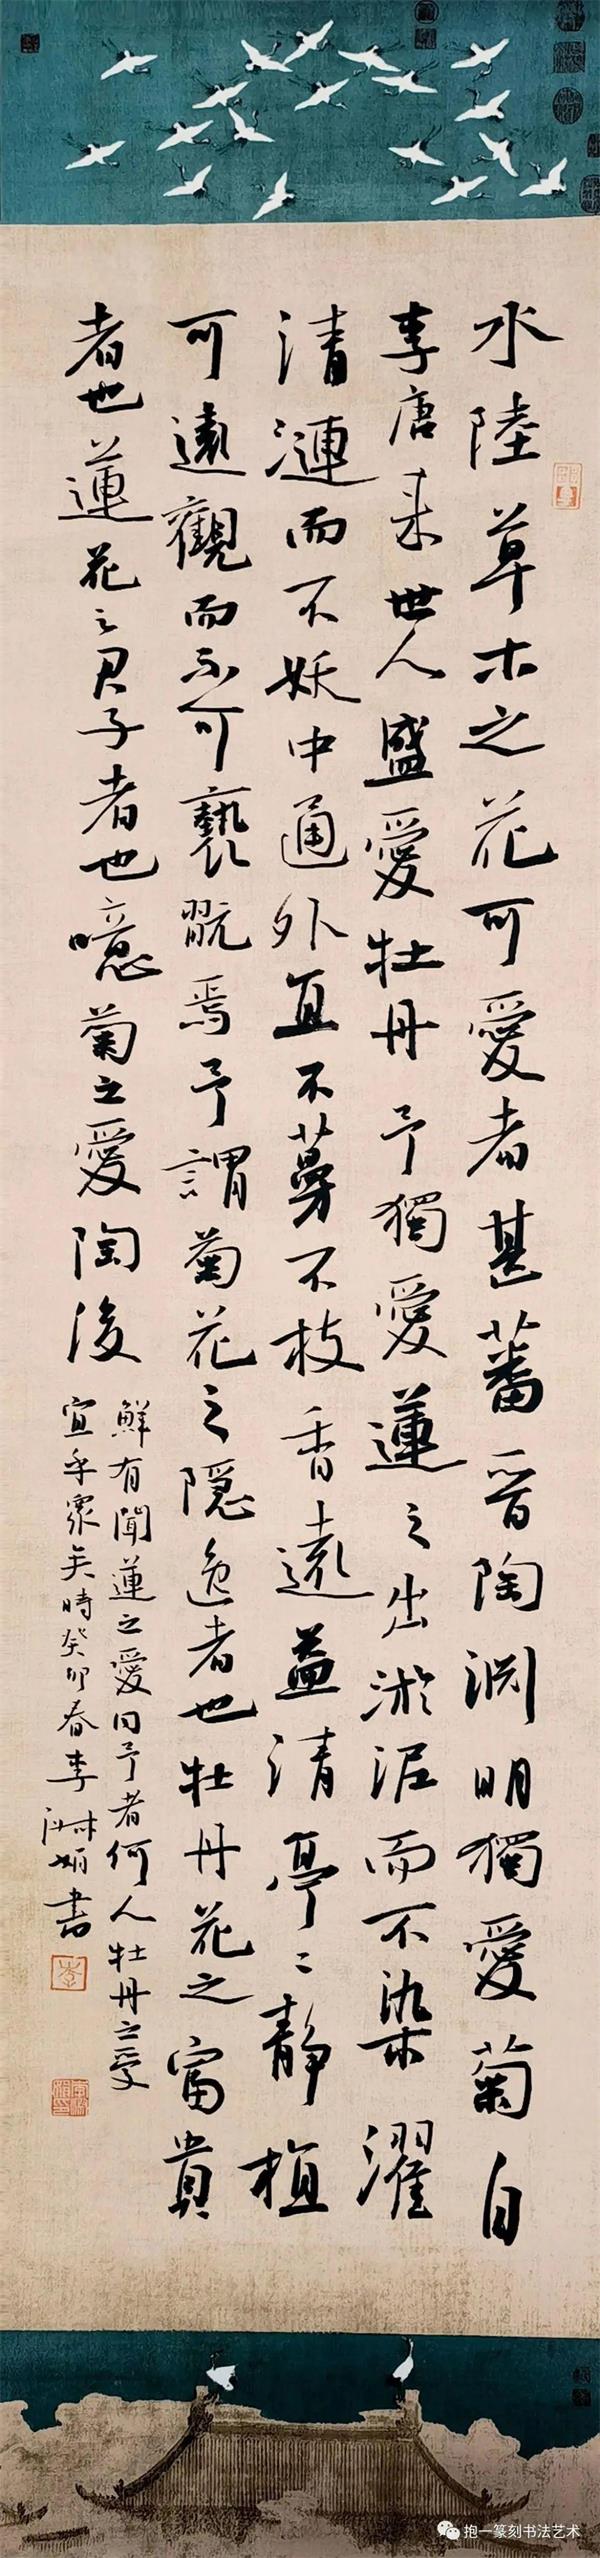 水陸草木之花可愛者甚蕃晉陶渊明獨愛菊自
李唐来世人盛愛牡丹予獨愛蓮之出淤泥而不染濯
清漣而不妖中通外直不蔓不枝香遠益清亭〻静植
可遠觀而不可褻翫焉予謂菊花之隠逸者也牡丹花之富貴
者也蓮花之君子者也噫菊之愛陶後
鮮有聞蓮之愛同予者何人牡丹之愛
宜乎衆矣時癸卯春李淋娟書
抱一篆刻书法艺术